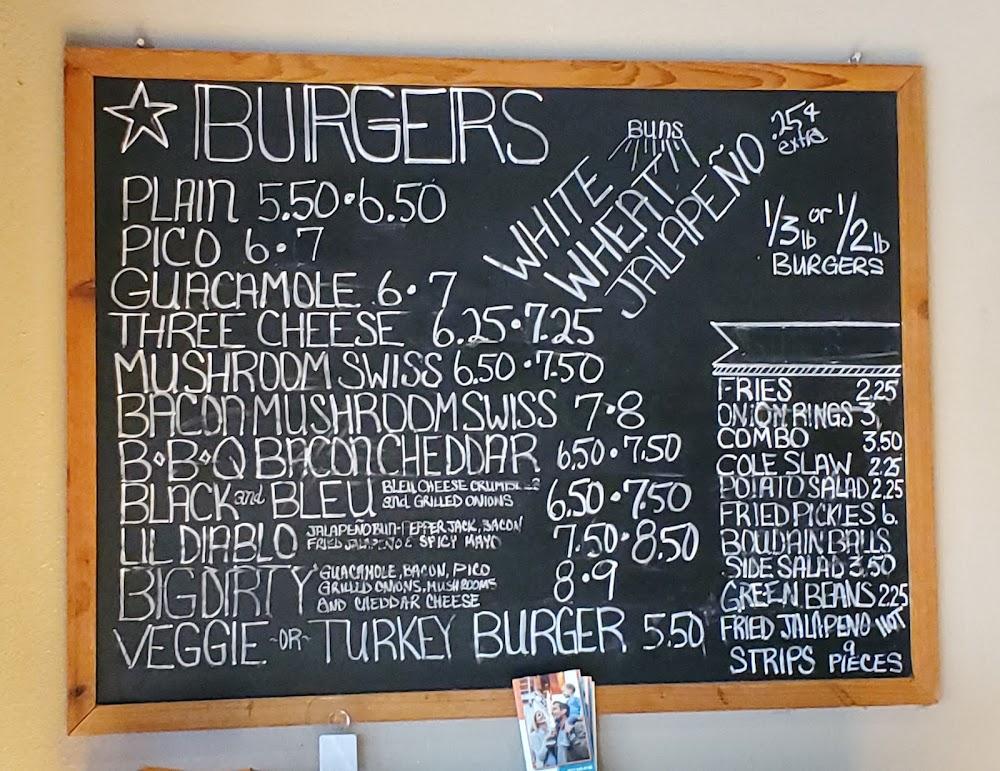 BURGERS
PLAIN 5.50•6.50
PICO 6•7
GUACAMOLE 6•7
THREE CHEESE 6.25•7.25
MUSHROOM SWISS 6.50•7.50
BACON MUSHROOM SWISS 7•8
B•B•Q BACON CHEDDAR 6.50•7.50
BLACK and BLEU BLEU CHEESE CRUMBLES and GRILLED ONIONS 6.50•7.50
LIL DIABLO JALAPEÑO BUN-PEPPER JACK, BACON
FRIED JALAPEÑO & SPICY MAYO 7.50•8.50
BIG DIRTY GUACAMOLE, BACON, PICO
GRILLED ONIONS, MUSHROOMS
AND CHEDDAR CHEESE 8•9
VEGGIE ~OR~ TURKEY BURGER 5.50
BUNS
WHITE
WHEAT
JALAPEÑO
.25¢
extra
1/3 lb or 1/2 lb
BURGERS
FRIES 2.25
ONION RINGS 3.
COMBO 3.50
COLE SLAW 2.25
POTATO SALAD 2.25
FRIED PICKLES 6.
BOUDAIN BALLS
SIDE SALAD 3.50
GREEN BEANS 2.25
FRIED JALAPENO HOT
STRIPS 9 PIECES